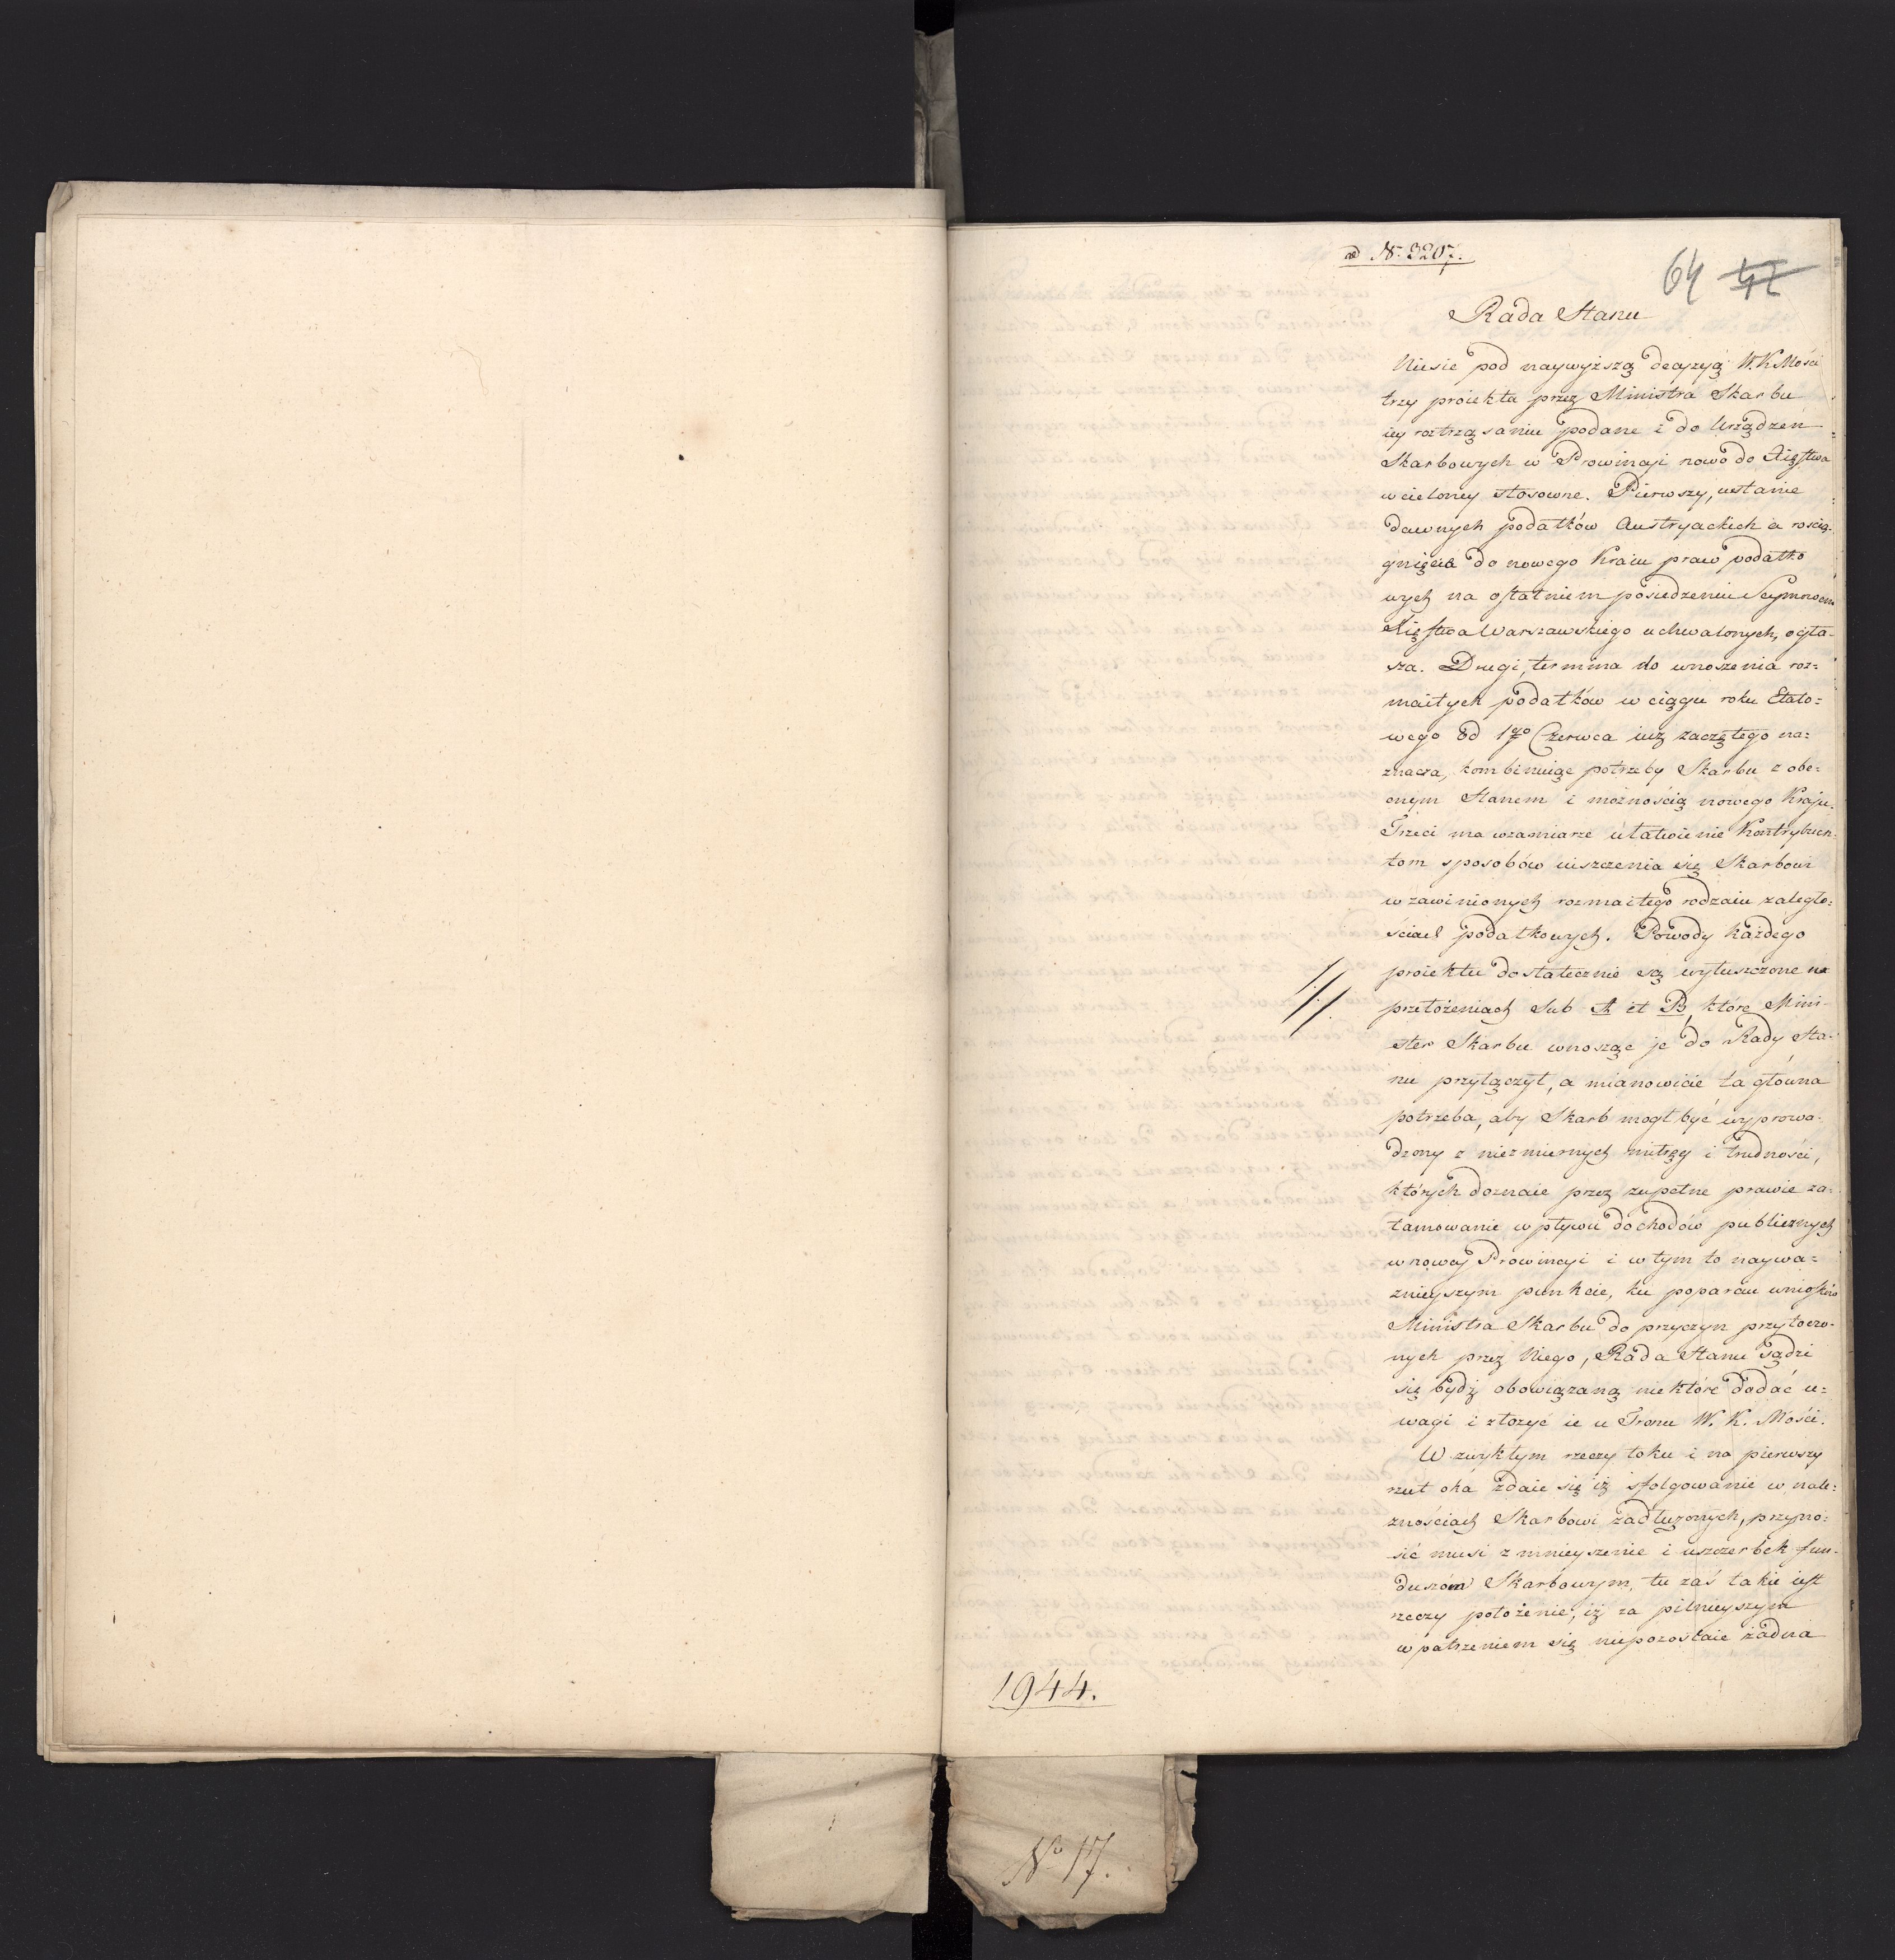 ad N. 3207.
64 47
Rada Stanu
Niesie pod naywyższą decyzyą W. K Mości
trzy proiekta przez Ministra Skarbu
iey roztrząsaniu podane i do Urządzeń
Skarbowych w Prowincyi nowo do Xięstwa
wcieloney stosowne. Pierwszy, ustanie
dawnych podatków Austryackich a rością-
gnięcie do nowego Kraiu praw podatko
wych na ostatniem posiedzeniu Seymowem
Xięstwa Warszawskiego uchwalonych, ogła-
sza. Drugi, termina do wnoszenia roz-
maitych podatków w ciągu roku Etato-
wego od 1go Czerwca iuż zaczętego na-
znacza, kombinuiąc potrzeby Skarbu z obe-
cnym Stanem i możnością nowego Kraju.
Trzeci ma wzamiarze ułatwienie Kontrybuen-
tom sposobów uiszczenia się Skarbowi
w zawinionych rozmaitego rodzaiu zaległo-
ściach podatkowych. Powody każdego
proiektu dostatecznie są wyłuszczone na
przełożeniach Sub A et B, które Mini-
ster Skarbu wnosząc je do Rady Sta-
nu przyłączył, a mianowicie ta główna
potrzeba, aby Skarb mogł być wyprowa-
dzony z niezmiernych mitręg i trudności,
których doznaie przez zupełne prawie za-
tamowanie wpływu dochodów publicznych
w nowej Prowincyi i w tym to naywa-
żnieyszym punkcie, ku poparciu wniosków
Ministra Skarbu do przyczyn przytoczo-
nych przez Niego, Rada Stanu sądzi
się bydź obowiązaną niektóre dodać u-
wagi i złożyć ie u Tronu W. K. Mości.
W zwykłym rzeczy toku i na pierwszy
rzut oka zdaie się iż sfolgowanie w nale-
żnościach Skarbowi zadłużonych, przyno-
sić musi zmnieyszenie i uszczerbek fun-
duszóm Skarbowym, tu zaś takie iest
rzeczy położenie, iż za pilnieyszym
wpatrzeniem się niepozostaie żadna
1944.
No 17.